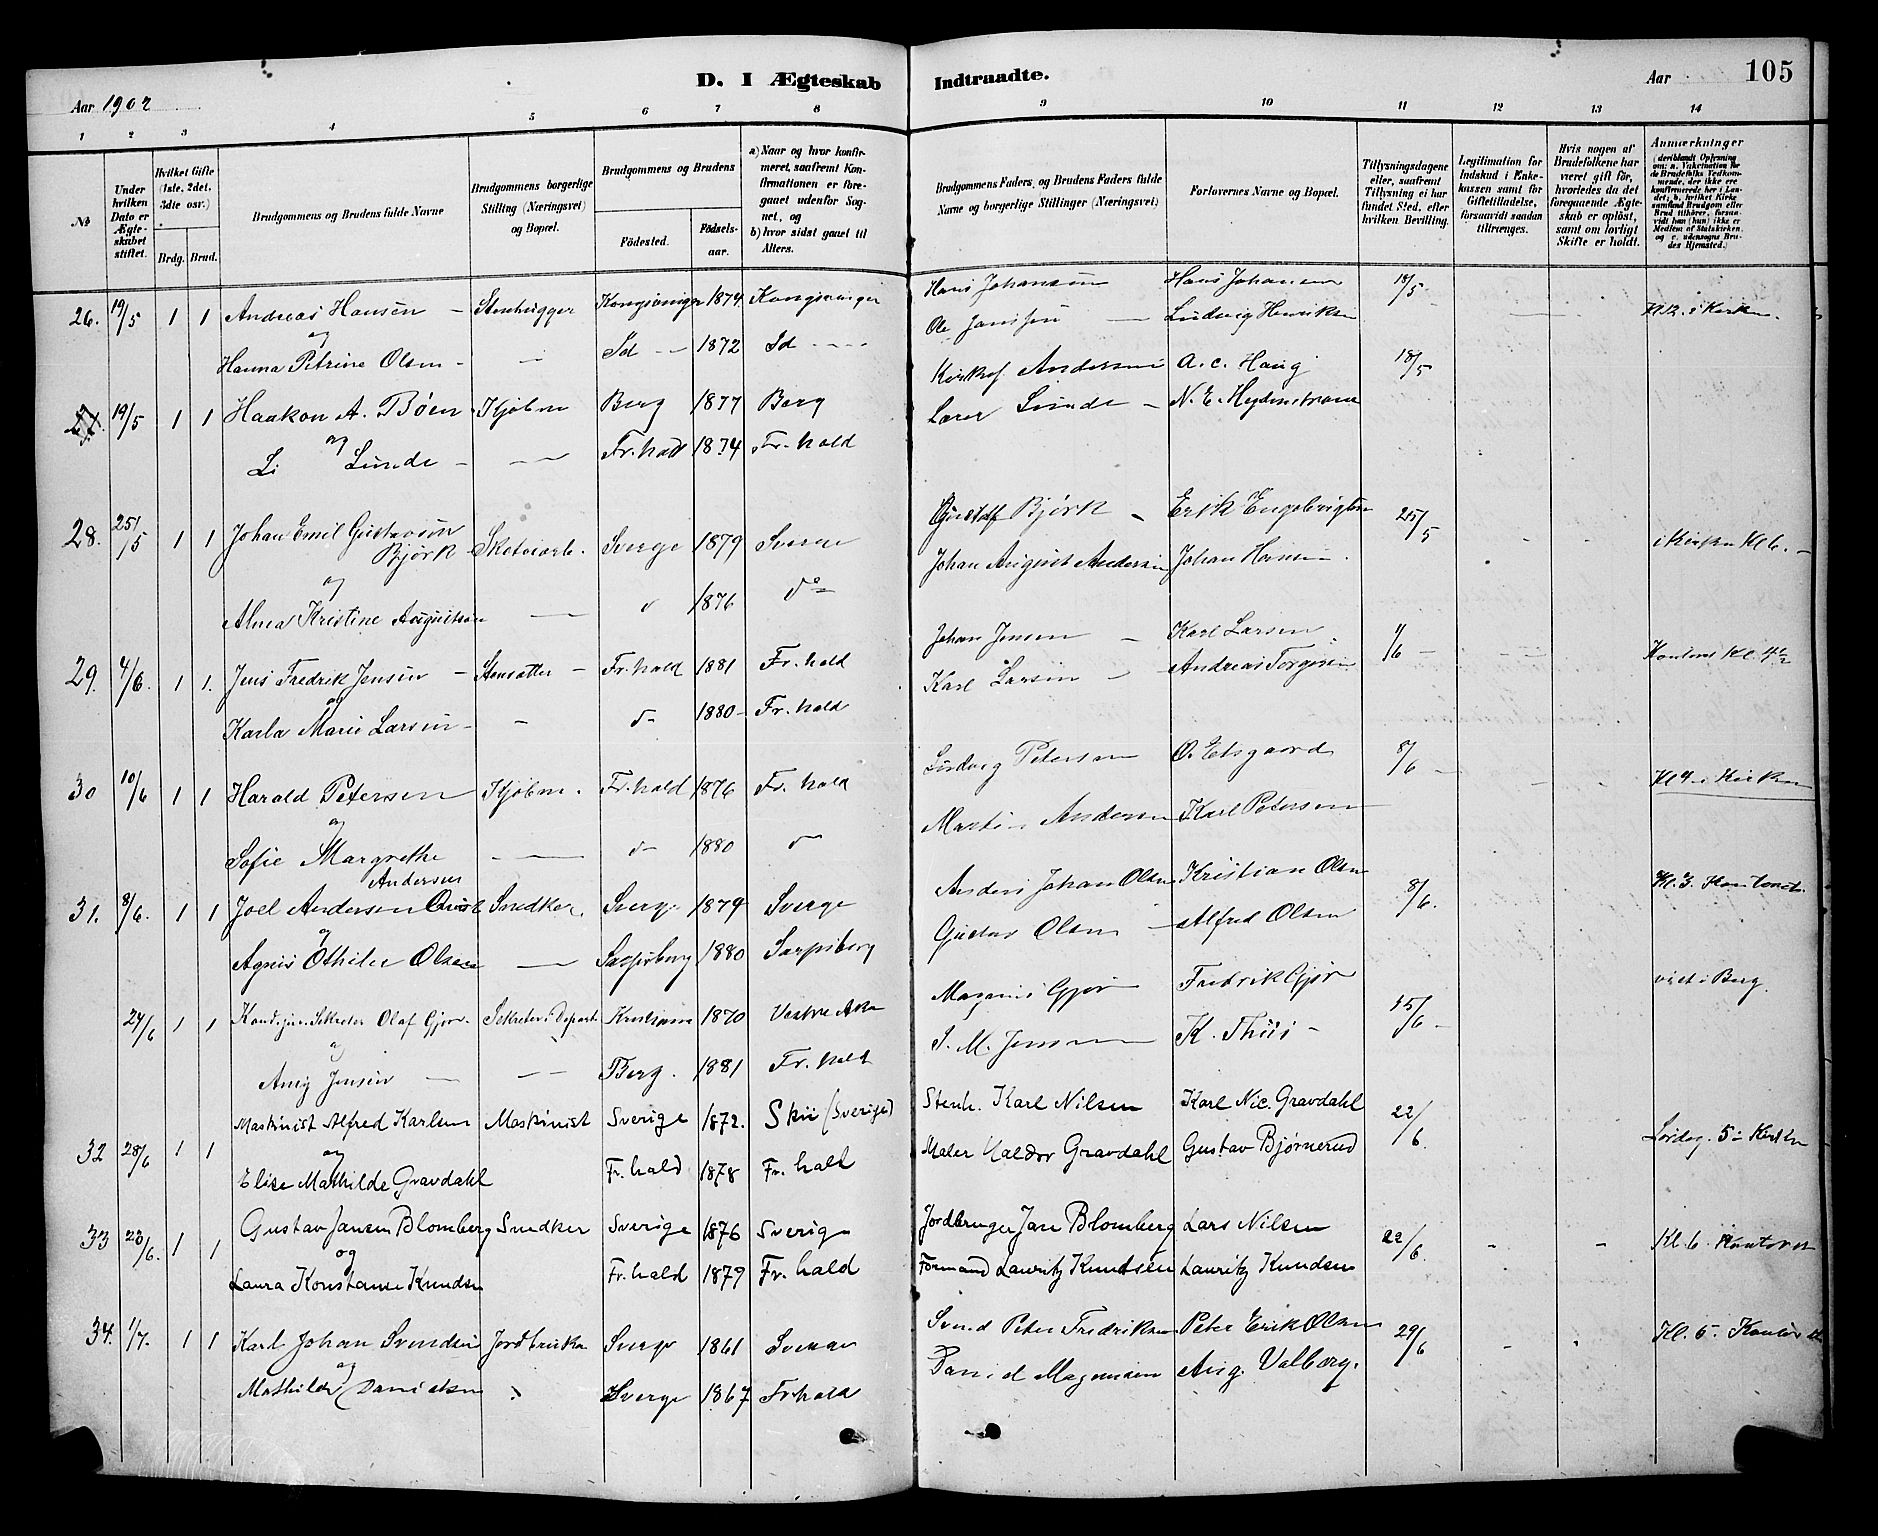 D. I Ægteskab Indtraadte.
Aar 1902
Aar
105
1 2 3 4 5 6 7 8 9 10 11 12 13 14
No
Under hvilken Dato er Ægteskabet stiftet.
Hvilket Gifte (1ste, 2det, 3die osv.)
Brdg. Brud.
Brudgommens og Brudens fulde Navne
Brudgommens borgerlige Stilling (Næringsvei) og Bopæl.
Brudgommens og Brudens
Födested.
Födselsaar.
a) Naar og hvor konfirmeret, saafremt Konfirmationen er foregaaet udenfor Sognet, og
b) hvor sidst gaaet til Alters.
Brudgommens Faders og Brudens Faders fulde Navne og borgerlige Stillinger (Næringsvei)
Forlovernes Navne og Bopæl.
Tillysningsdagene eller, saafremt Tillysning ei har fundet Sted, efter hvilken Bevilling.
Legitimation for Indskud i Enkekassen samt for Giftetilladelse, forsaavidt saadan tiltrænges.
Hvis nogen af Brudefolkene har været gift för, hvorledes da det foregaaende Ægteskab er oplöst, samt om lovligt Skifte er holdt.
Anmærkninger
(deriblandt Oplysning om: a. Vakcination for de Brudefolks Vedkommende, der ikke ere konfirmerede her i Landet; b. hvilket Kirkesamfund Brudgom eller Brud tilhörer, forsaavidt han (hun) ikke er Medlem af Statskirken, og c. udensogns Brudes Hjemsted.)
26. 19/5 1 1 Andreas Hansen – Stenhugger Kongsvinger 1874 Kongsvinger Hans Johansen Hans Johansen 18/5
og Ole Ludvig Henriksen
Hanna Petrine Olsen – Id 1872 Id
27. 19/5 1 1 Haakon A. Bøen Kjøbm Berg 1877 Berg Andersen A. C. Haug 18/5
og Lærer Lunde – N. E.
Li Lunde – Fr.hald 1874 Fr.hald
28. 25/5 1 1 Johan Emil Gustavsen Bjørk Sverge 1879 Sverge Gustaf Bjørk Erik 25/5 i Kirken Kl 6.
og Johan August Andersen Johan Hansen
Alma Kristine 1876 do
29. 4/6. 1 1. Jens Fredrik Jensen – Fr.hald 1881 Fr.hald Johan Jensen – Karl Larsen 1/6
og Karl Larsen Andreas
Karla Marie Larsen – 1880 Fr.hald
30 10/6 1 1 Harald Petersen Kjøbm. Fr.hald 1876 Fr.hald Ludvig Petersen 8/6
og Martin Andersen Karl Petersen
Sofie Margrethe Andersen 1880
31. 8/6. 1 1 Joel Andersen Snedker Sverge 1879 Sverge Anders Johan Olsen Kristian Olsen 8/6. Kl. 3. Kontoret.
og Gustav Olsen – Alfred Olsen
Agnes Othilie Olsen Sarpsborg 1880 Sarpsborg
24/6 1 1 Kand. jur. Sekretær Olaf Gjør. Sekretær i Depart. Kristiania 1870 Vestre Aker Magnus Gjør Fredrik Gjør 15/6 viet i Berg.
og S. M. Jensen K. Thiis –
Jensen Berg. 1881 Fr.hald
32 28/6 1 1 Maskinist Alfred Karlsen Maskinist Sverige 1872. (Sverige) Stenh. Karl Nilsen Karl Nic. Gravdahl 22/6. Lørdag. 5 i Kirken
og Maler Haldor Gravdahl Gustav Bjørnerud
Elise Mathilde Gravdahl Fr.hald 1878 Fr.hald
33 28/6. 1 1 Gustav Jansen Blomberg Snedker Sverige 1876 Sverige Jordbruger Jan Blomberg Lars Nilsen 22/6. Kl. 6. Kontoret
og Formand Lauritz Knudsen Lauritz Knudsen
Laura Konstanse Knudsen Fr.hald 1879 Fr.hald
34. 1/7. 1 1 Karl Johan Svendsen Jordbruker Sverge 1861 Svend Peter Fredriksen Peter Erik Olsen 29/6 Kl. 5. Kontoret
og Daniel Magnusen Aug. Valberg.
Mathilde Danielsen Sverge 1867 Fr.hald